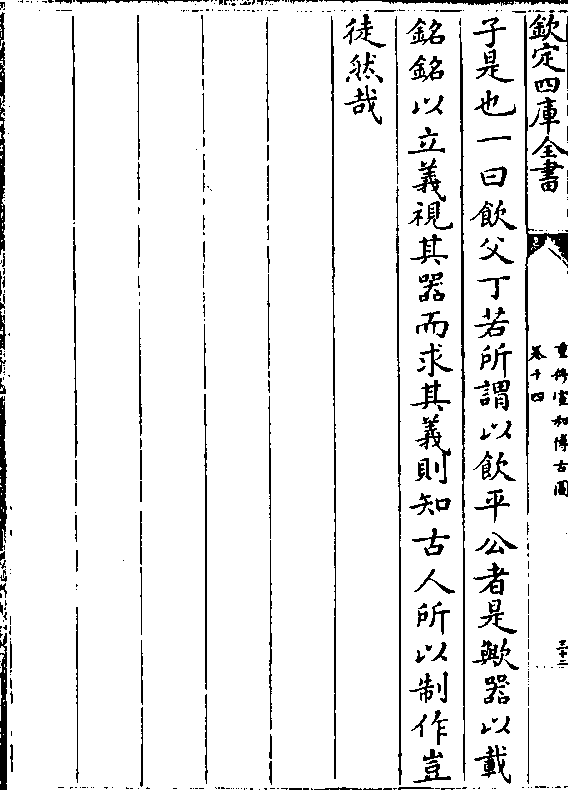 欽定四庫全書
重修宣和博古圖
卷十四
三十二
子是也一曰飲父丁若所謂以飲平公者是歟器以載
銘銘以立義視其器而求其義則知古人所以制作豈
徒然哉